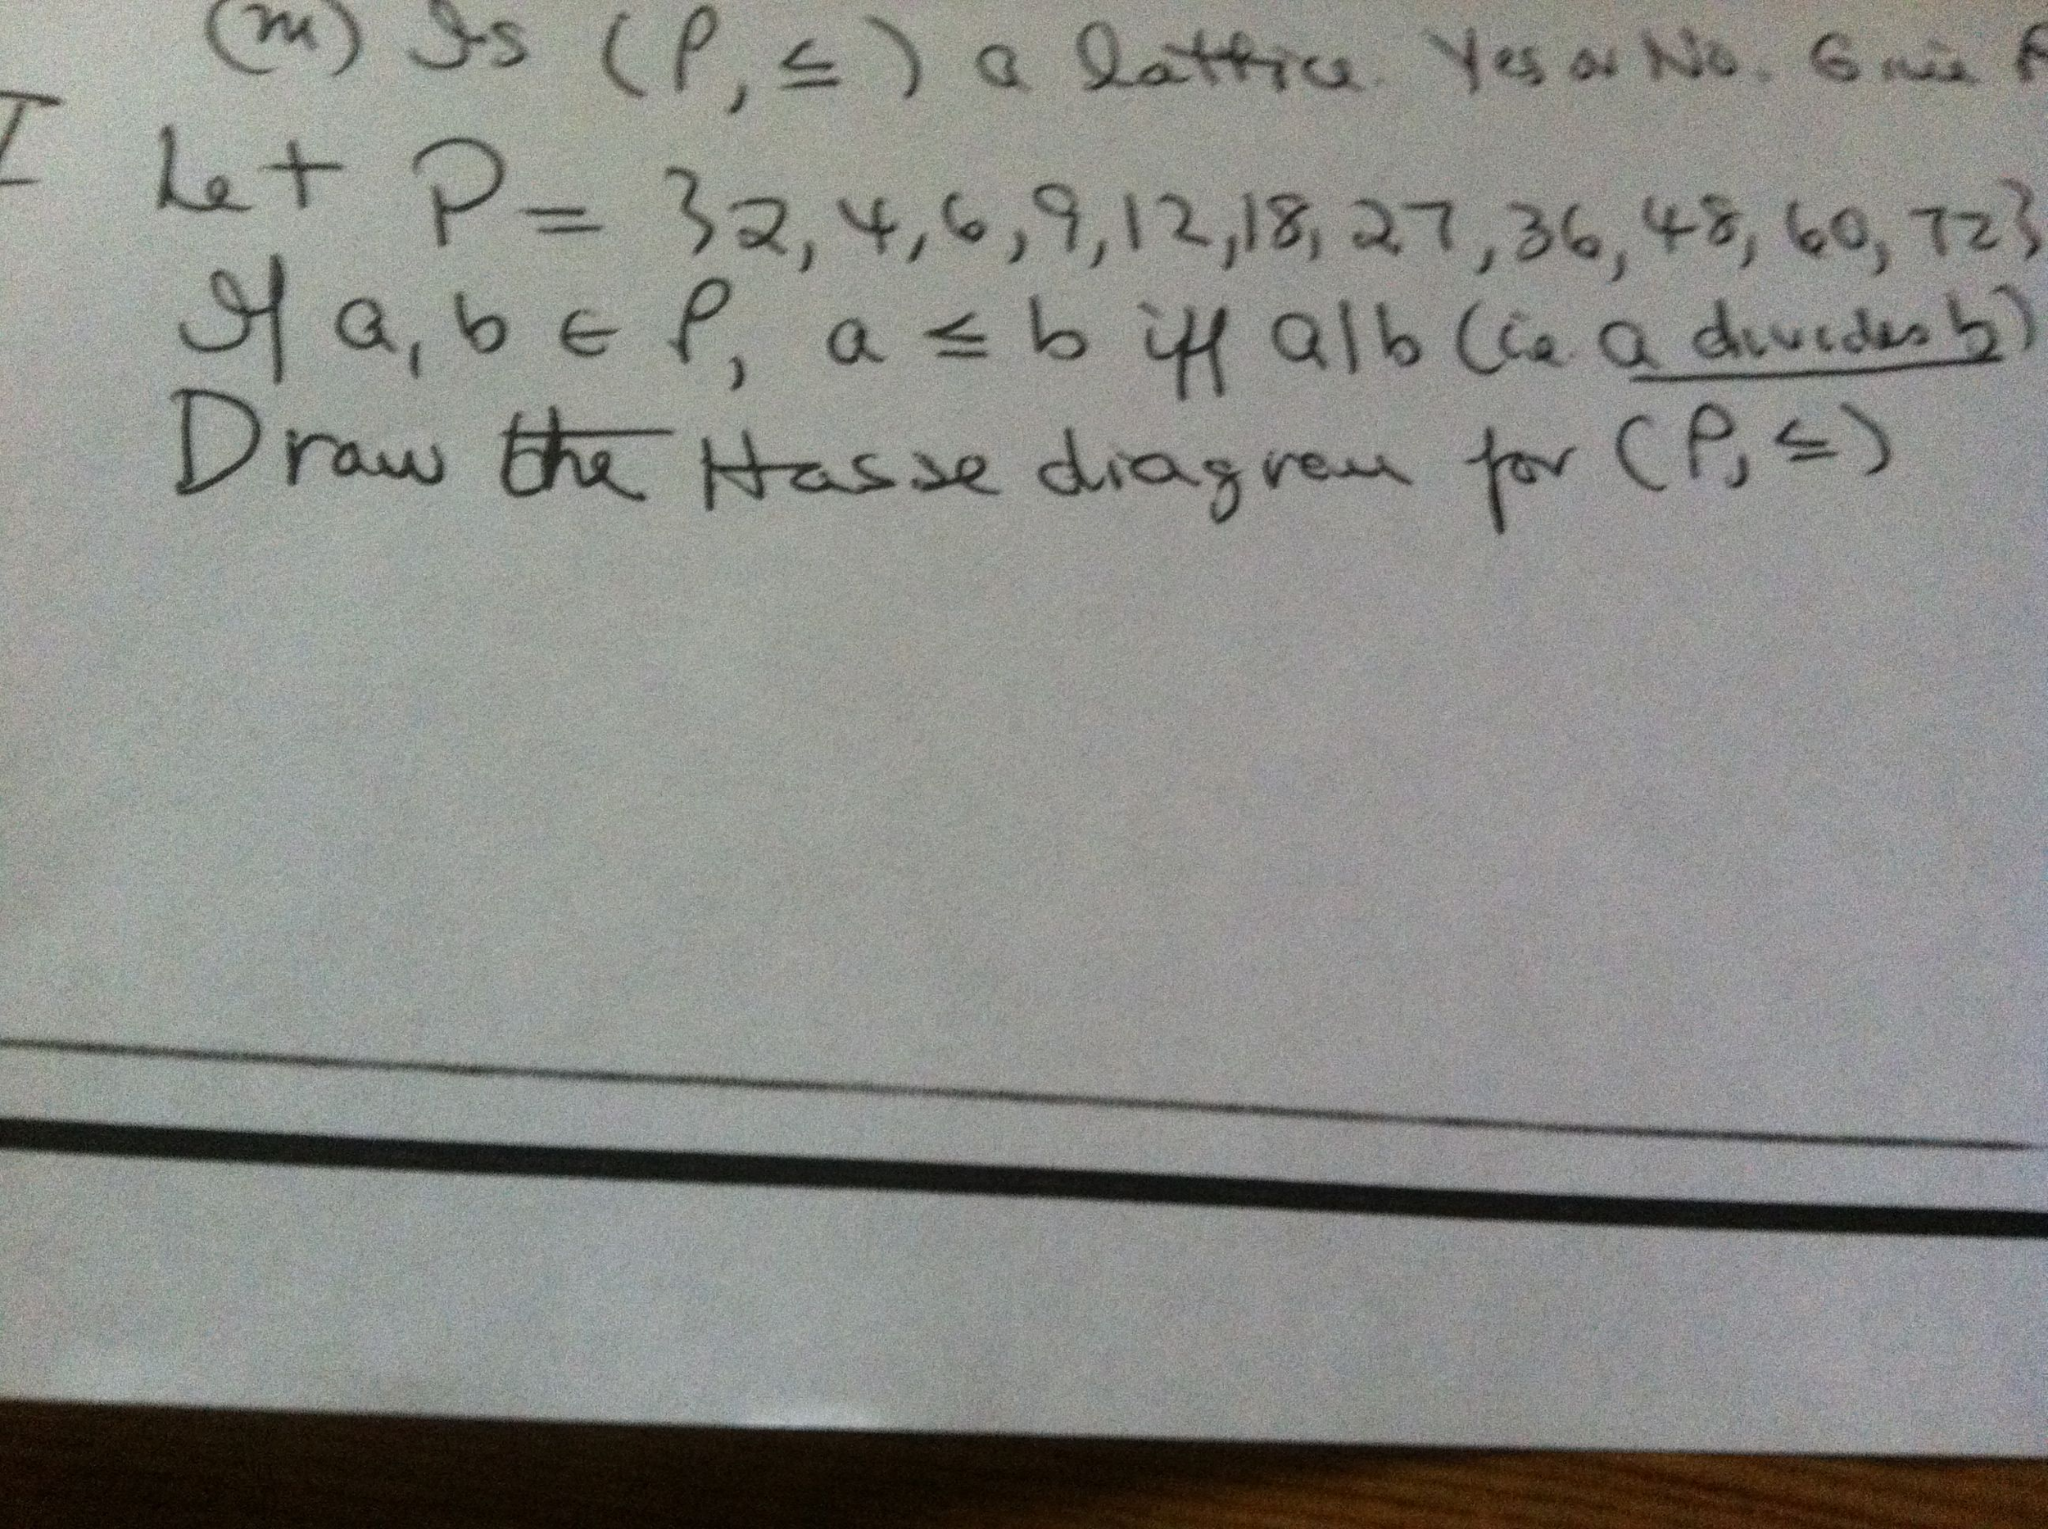 (m) Is (P, ≤) a lattice. Yes or No. Give
I Let P = {2, 4, 6, 9, 12, 18, 27, 36, 48, 60, 72}
If a, b ∈ P, a ≤ b iff a|b (ie a divides b)
Draw the Hasse diagram for (P, ≤)